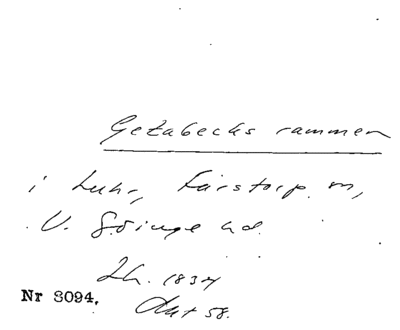 Getabecks rammen
i Luhr, Färstorp m,
V. Göinge hd.
Lh. 1834
Akt 58.
Nr 3094.